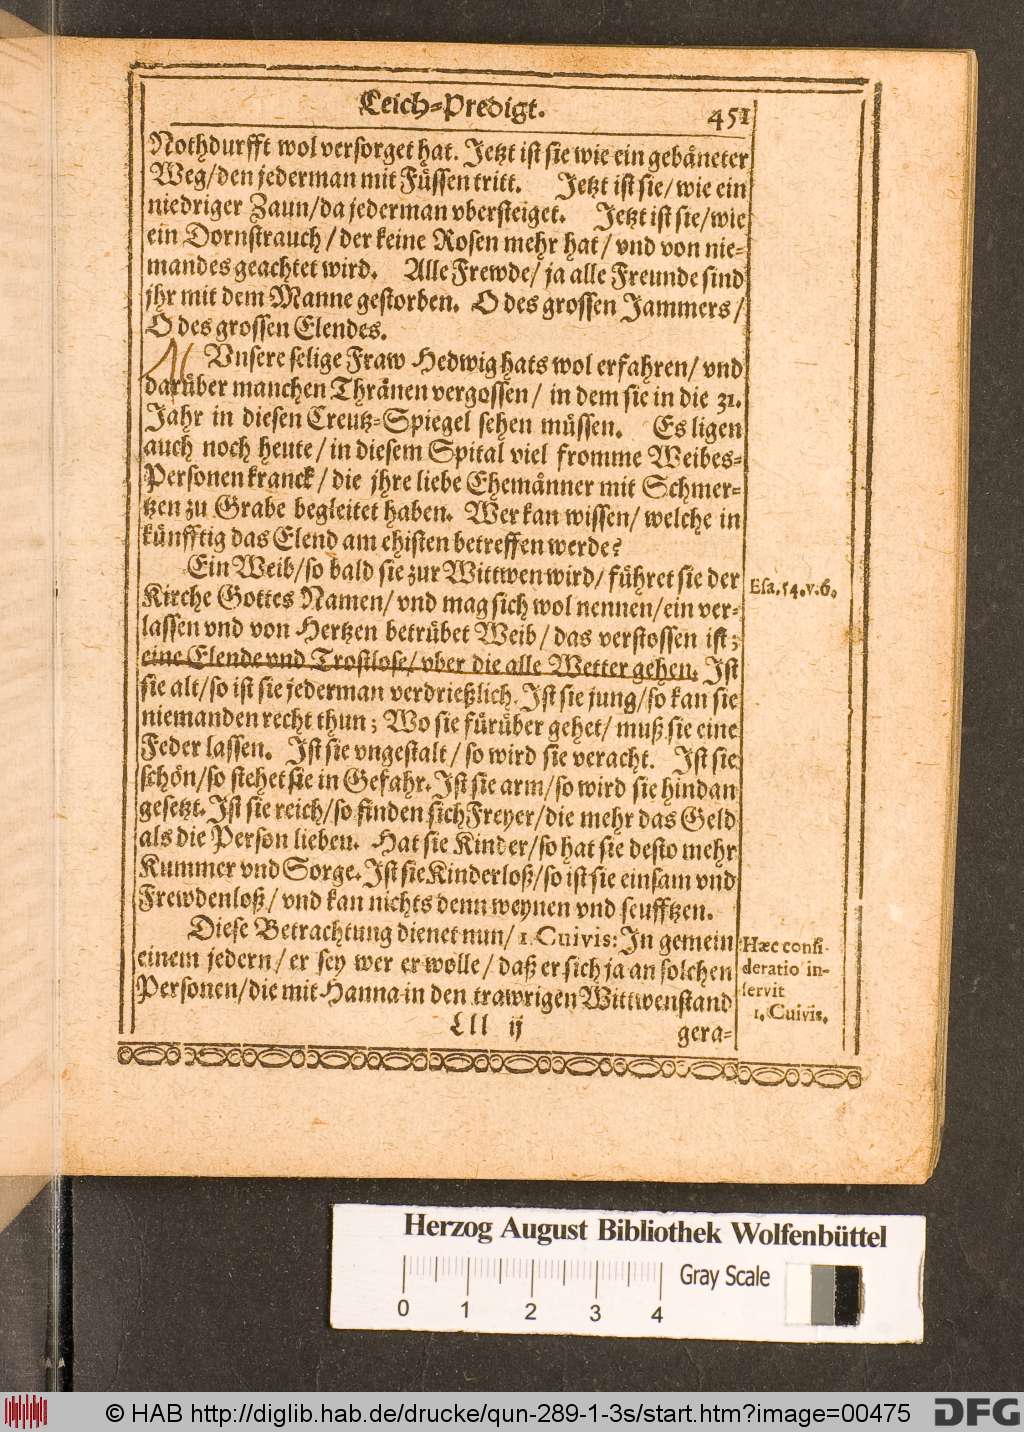 Leich-Predigt. 451
Nothdurfft wol versorget hat. Jetzt ist sie wie ein gebåneter
Weg/den jederman mit Füssen tritt. Jetzt ist sie/ wie ein
niedriger Zaun/da jederman vbersteiget. Jetzt ist sie/wie
ein Dornstrauch/ der keine Rosen mehr hat/ vnd von nie-
mandes geachtet wird. Alle Frewde/ ja alle Freunde sind
jhr mit dem Manne gestorben. O des grossen Jammers/
O des grossen Elendes.
Vnsere selige Fraw Hedwig hats wol erfahren/ vnd
darüber manchen Thränen vergossen/ in dem sie in die 31.
Jahr in diesen Creutz-Spiegel sehen müssen. Es ligen
auch noch heute/ in diesem Spital viel fromme Weibes-
Personen kranck/ die jhre liebe Ehemånner mit Schmer-
tzen zu Grabe begleitet haben. Wer kan wissen/ welche in
künfftig das Elend am ehisten betreffen werde?
Ein Weib/so bald sie zur Wittwen wird/ führet sie der
Kirche Gottes Namen/ vnd mag sich wol nennen/ein ver-
lassen vnd von Hertzen betrübet Weib/ das verstossen ist;
eine Elende vnd Trostlose/ vber die alle Wetter gehen. Ist
sie alt/so ist sie jederman verdrießlich. Ist sie jung/so kan sie
niemanden recht thun; Wo sie fürüber gehet/ muß sie eine
Feder lassen. Ist sie vngestalt/ so wird sie veracht. Ist sie
schön/so stehet sie in Gefahr. Ist sie arm/so wird sie hindan
gesetzt. Ist sie reich/so finden sich Freyer/die mehr das Geld
als die Person lieben. Hat sie Kinder/so hat sie desto mehr
Kummer vnd Sorge. Ist sie Kinderloß/so ist sie einsam vnd
Frewdenloß/ vnd kan nichts denn weynen vnd seufftzen.
Diese Betrachtung dienet nun/ 1. Cuivis: In gemein
einem jedern/ er sey wer er wolle/ daß er sich ja an solchen
Personen/die mit Hanna in den trawrigen Wittwenstand
Lll ij gera-
Esa. 54. v. 6.
Hæc consi-
deratio in-
servit
1. Cuivis.
Herzog August Bibliothek Wolfenbüttel
Gray Scale
0 1 2 3 4
© HAB http://diglib.hab.de/drucke/qun-289-1-3s/start.htm?image=00475
DFG